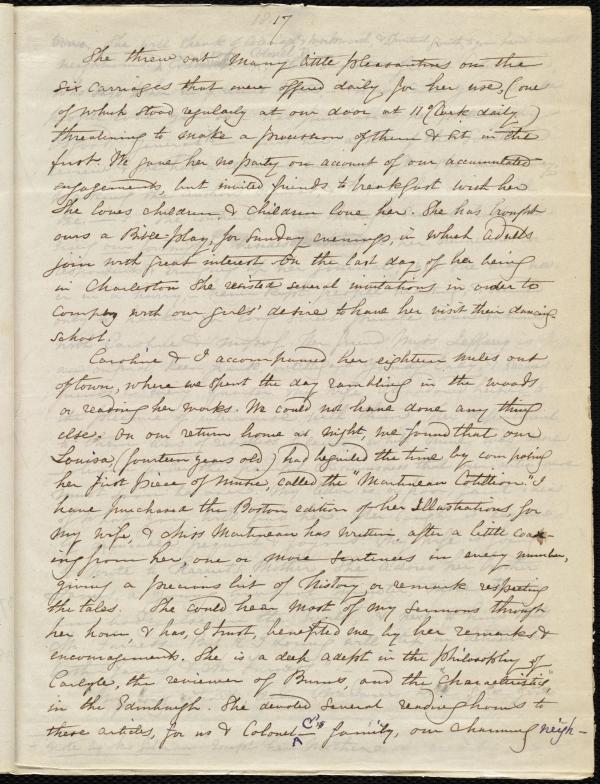 17
She threw out many little pleasantries on the
six carriages that were offered daily for her use, (one
of which stood regularly at our door at 11 o'clock daily)
threatening to make a procession of them & sit in the
first. We gave her no party on account of our accumulated
engagements, but invited friends to breakfast with her
She loves children, & children love her. She has brought
ours a Bible play, for Sunday evenings, in which adults
join with great interest. On the last day of her being
in Charleston She resisted several invitations in order to
comply with our girls' desire to have her visit their dancing-
school.
Caroline & I accompanied her eighteen miles out
of town, where we spent the day rambling in the woods
or reading her works. We could not have done any thing
else. On our return home at night, we found that our
Louisa, (fourteen years old) had beguiled the time by composing
her first piece of music, called the "Martineau Cotillion." I
have purchased the Boston edition of her Illustrations, for
my wife, & Miss Martineau has written, after a little coax-
ing from her, one or more sentences in every number,
giving a precious bit of history or remark respecting
the tales. She could hear most of my sermons through
her horn, & has, I trust, benefited me by her remarks &
encouragements. She is a deep adept in the philosophy of
Carlyle, the reviewer of Burns, and the "characteristics",
in the Edinburgh. She devoted several reading hours to
these articles, for us & Colonel C's family, our charming neigh-